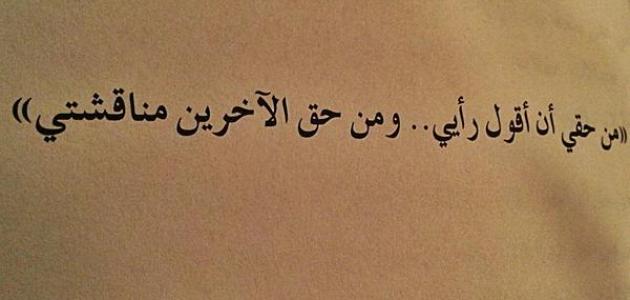 «من حقي أن أقول رأيي.. ومن حق الآخرين مناقشتي»